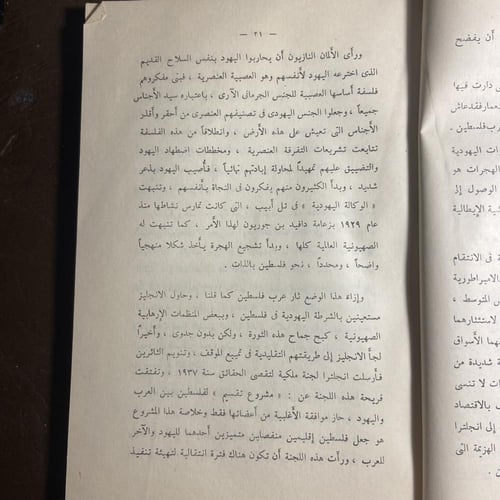 — ٢١ —
ورأى الألمان النازيون أن يحاربوا اليهود بنفس السلاح القديم
الذى اخترعه اليهود لأنفسهم وهو العصبية العنصرية ، فبنى مفكروهم
فلسفة أساسها العصبية للجنس الجرمانى الآرى ، باعتباره سيد الأجناس
جميعاً ، وجعلوا الجنس اليهودى فى تصنيفهم العنصرى من أحقر وأقذر
الأجناس التى تعيش على هذه الأرض ، وانطلاقاً من هذه الفلسفة
تتابعت تشريعات التفرقة العنصرية ، ومخططات اضطهاد اليهود
والتضييق عليهم تمهيداً لمحاولة إبادتهم نهائياً ، فأصيب اليهود بذعر
شديد ، وبدأ الكثيرون منهم يفكرون فى النجاة بأنفسهم ، وتنبهت
« الوكالة اليهودية » فى تل أبيب ، التى كانت تمارس نشاطها منذ
عام ١٩٢٩ بزعامة دافيد بن جوريون لهذا الأمر ، كما تنبهت له
الصهيونية العالمية كلها ، وبدأ تشجيع الهجرة يأخذ شكلا منهجياً
واضحاً ، ومحدداً ، نحو فلسطين بالذات .
وإزاء هذا الوضع ثار عرب فلسطين كما قلنا ، وحاول الانجليز
مستعينين بالشرطة اليهودية فى فلسطين ، وببعض المنظمات الإرهابية
الصهيونية ، كبح جماح هذه الثورة ، ولكن بدون جدوى ، وأخيراً
لجأ الانجليز إلى طريقتهم التقليدية فى تمييع الموقف ، وتنويم الثائرين
فأرسلت انجلترا لجنة ملكية لتقصى الحقائق سنة ١٩٣٧ ، وتفتقت
قريحة هذه اللجنة عن : « مشروع تقسيم » لفلسطين بين العرب
واليهود ، حاز موافقة الأغلبية من أعضائها فقط وخلاصة هذا المشروع
هو جعل فلسطين إقليمين منفصلين متميزين أحدهما لليهود والآخر
للعرب ، ورأت هذه اللجنة أن تكون هناك فترة انتقالية لتهيئة تنفيذ
أن يفضح
دارت فيها
ب فلسطين .
ات اليهودية
الهجرات هو
الوصول إلى
ية الإيطالية
فى الانتقام
الامبراطورية
المتوسط ،
لاستثمارهما
هما الأسواق
شديدة من
ات لا تنسى
ب بالاقتصاد
إلى انجلترا
الهزيمة التى